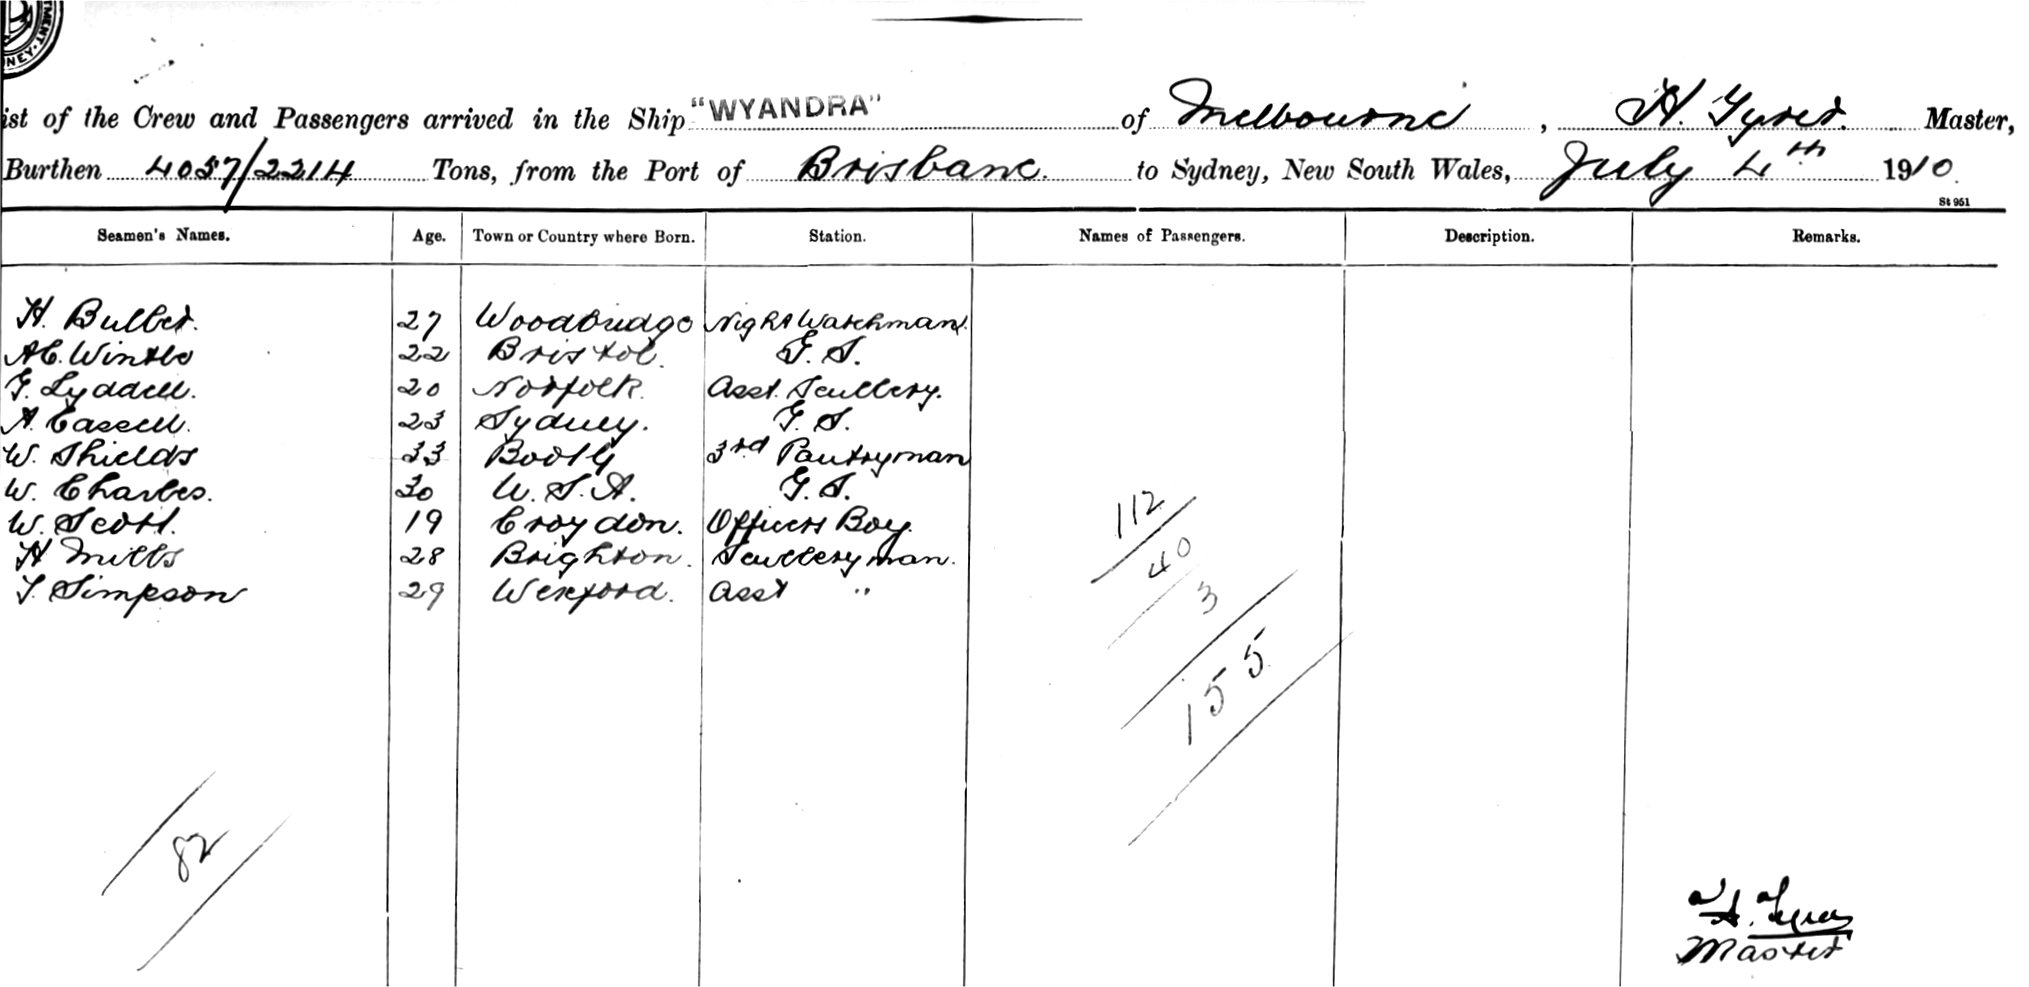 TMENT. NEY
ist of the Crew and Passengers arrived in the Ship "WYANDRA" of Melbourne, H. Gyrer. Master,
Burthen 4057/2214 Tons, from the Port of Brisbane. to Sydney, New South Wales, July 4th 1910.
St 951
Seamen's Names. Age. Town or Country where Born. Station. Names of Passengers. Description. Remarks.
H. Bulber. 27 Woodbridge Night Watchman.
A.C. Wintle 22 Bristol. G. S.
G. Lyddell. 20 Norfolk. Asst. Scullery.
A. Cassell. 23 Sydney. G. S.
W. Shields 33 3rd Pantryman
W. Charles. 30 U. S. A. G. S.
W. Scott. 19 Croydon. Officers Boy.
H Mills 28 Brighton. Sculleryman.
T. Simpson 29 Wexford. Asst "
112
40
3
155
82
H.
Master